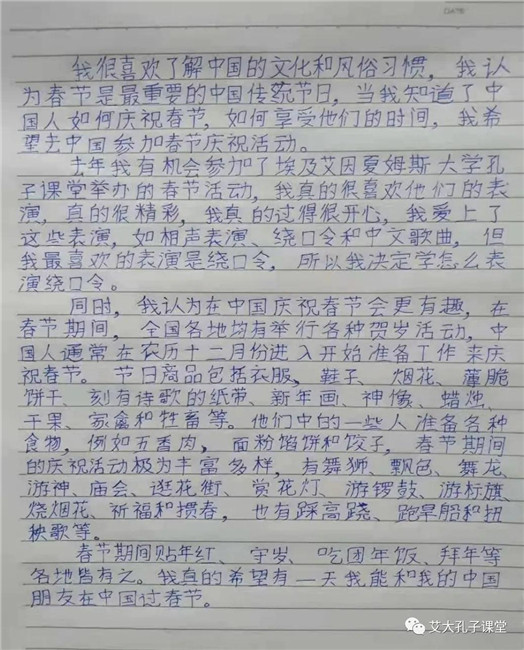 DATE
我很喜欢了解中国的文化和风俗习惯，我认
为春节是最重要的中国传统节日，当我知道了中
国人如何庆祝春节，如何享受他们的时间，我希
望去中国参加春节庆祝活动。
去年我有机会参加了埃及艾因夏姆斯大学孔
子课堂举办的春节活动，我真的很喜欢他们的表
演，真的很精彩，我真的过得很开心，我爱上了
这些表演，如相声表演、绕口令和中文歌曲，但
我最喜欢的表演是绕口令，所以我决定学怎么表
演绕口令。
同时，我认为在中国庆祝春节会更有趣，在
春节期间，全国各地均有举行各种贺岁活动，中
国人通常在农历十二月份进入开始准备工作来庆
祝春节。节日商品包括衣服，鞋子、烟花、薄脆
饼干、刻有诗歌的纸带、新年画、神像、蜡烛、
干果、家禽和牲畜等。他们中的一些人准备各种
食物，例如五香肉，面粉馅饼和饺子，春节期间
的庆祝活动极为丰富多样，有舞狮、飘色、舞龙、
游神、庙会、逛花街、赏花灯、游锣鼓、游标旗、
烧烟花、祈福和掼春，也有踩高跷、跑旱船和扭
秧歌等。
春节期间贴年红、守岁、吃团年饭、拜年等
各地皆有之。我真的希望有一天我能和我的中国
朋友在中国过春节。
艾大孔子课堂